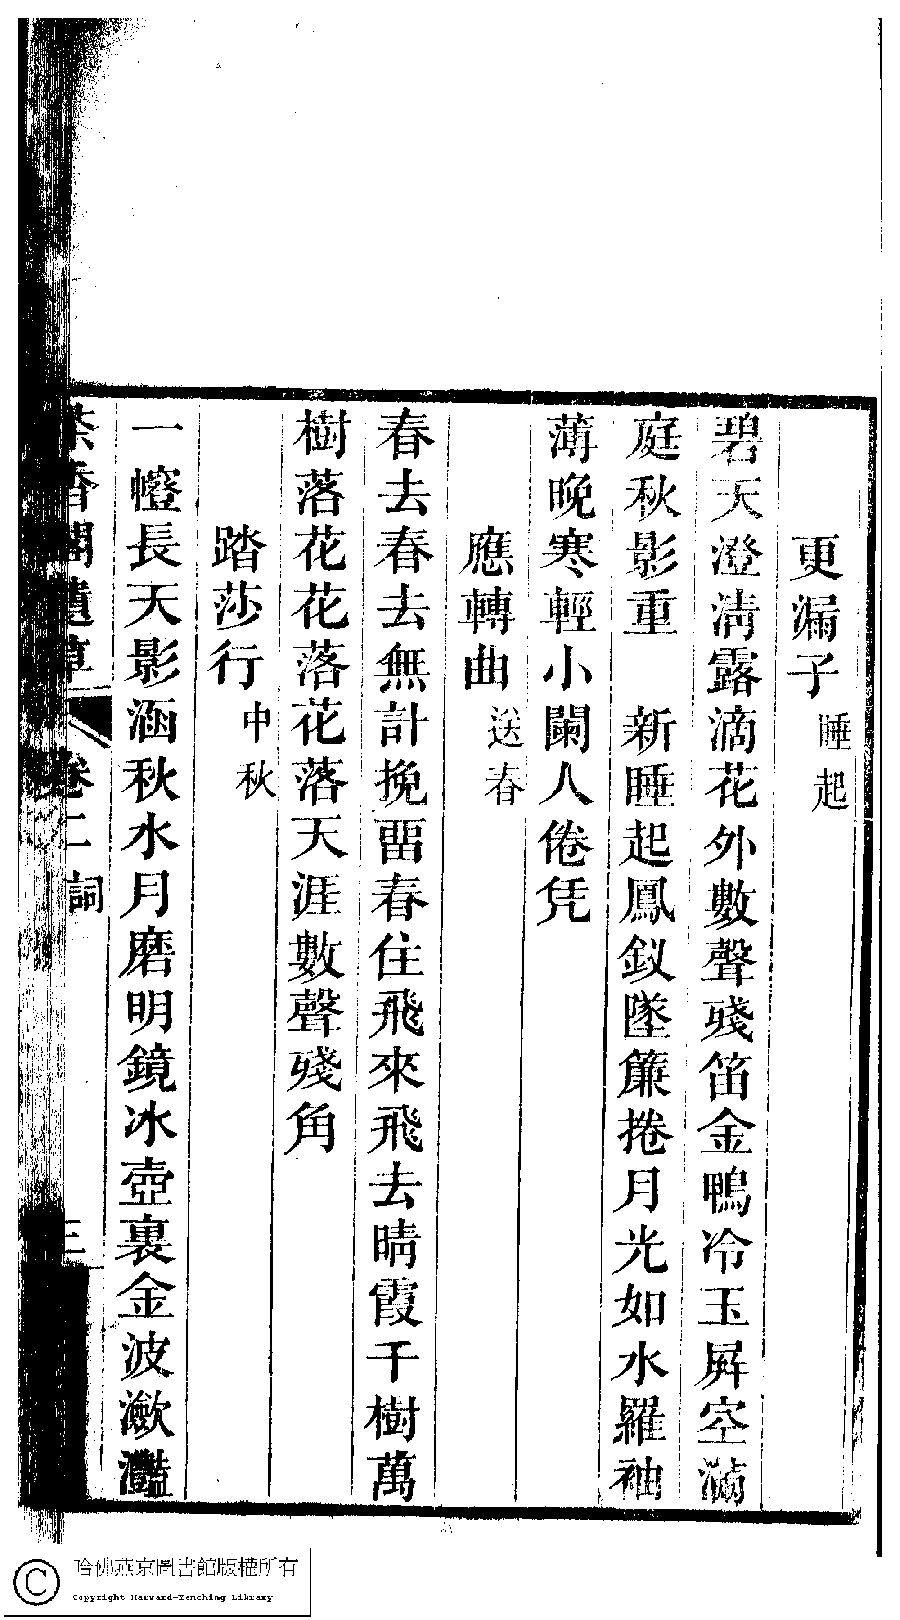 更漏子 睡起
碧天澄淸露滴花外數聲殘笛金鴨冷玉屛空滿
庭秋影重　新睡起鳳釵墜簾捲月光如水羅袖
薄晚寒輕小闌人倦凭
應轉曲 送春
春去春去無計挽畱春住飛來飛去晴霞千樹萬
樹落花花落花落天涯數聲殘角
踏莎行 中秋
一幢長天影涵秋水月磨明鏡冰壺裏金波瀲灩
茶香閣遺草 卷二 詞 三
哈佛燕京圖書館版權所有
Copyright Harvard-Yenching Library